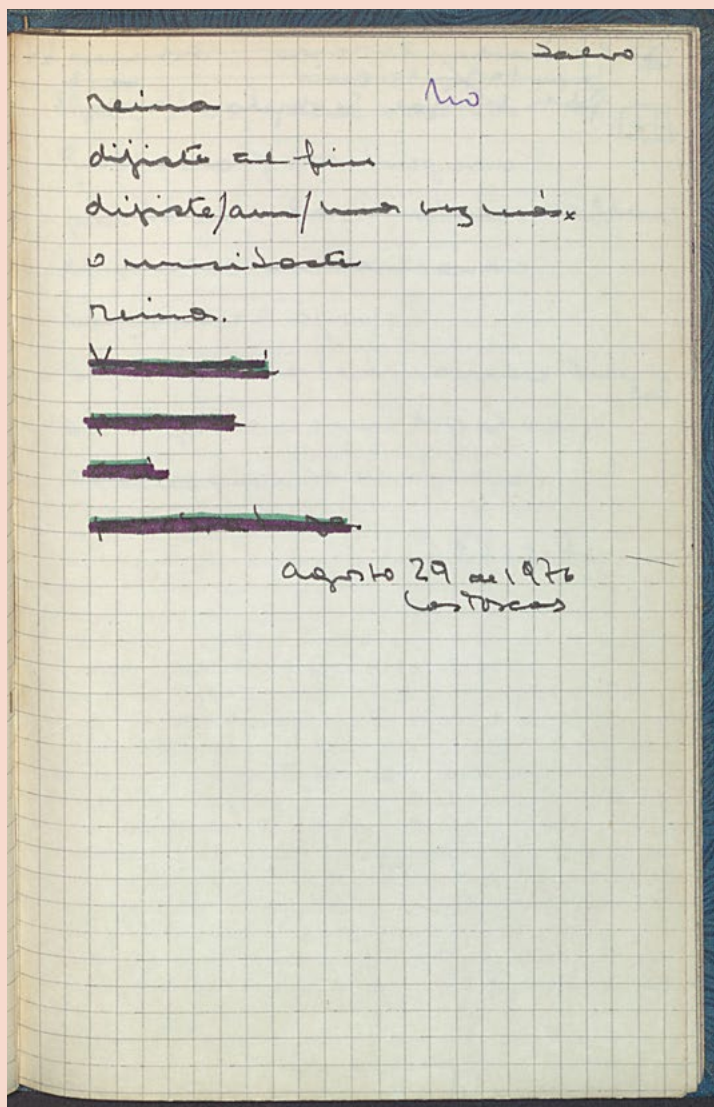 Salvo
reina No
dijiste al fin
dijiste/aun/una vez más
o musitaste
reina.
agosto 29 de 1976
Las Toscas